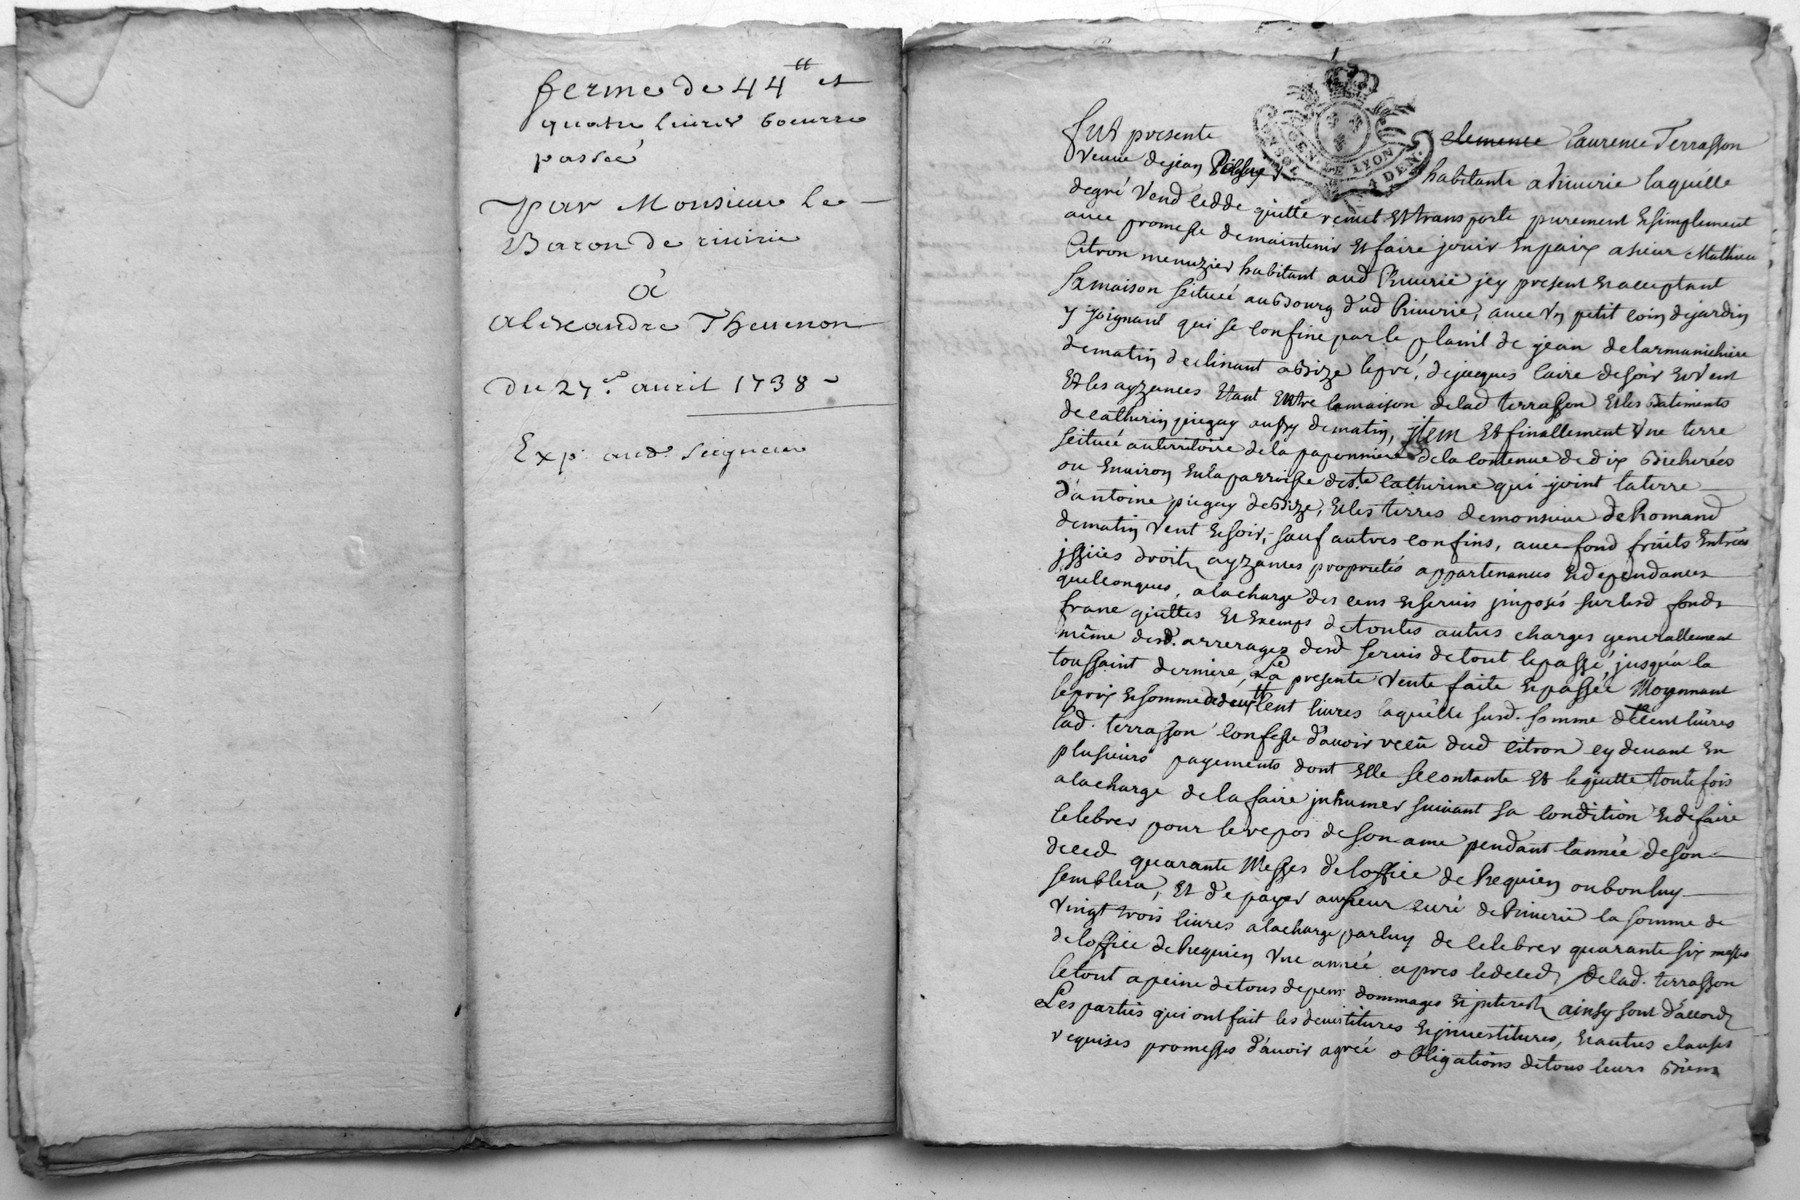 ferme de 44tt et
quatre livres beurre
passée
par Monsieur le
Baron de riverie
à
alexandre Thevenon
du 27e. avril 1738
Exp. aud. seigneur
GEN. DE LYON
4 DEN.
fut presente clemence laurence Terrasson
veuve de jean habitante a riverie laquelle
de gré vend cedde quitte remet et transporte purement et simplement
avec promesse de maintenir et faire jouir en paix a sieur Mathieu
Citron menuzier habitant aud Riverie jcy present et acceptant
sa maison scituée au bourg dud Riverie, avec un petit coin de jardin
y joignant qui se confine par le plassit de jean delarmanichere
de matin declinant a bize le pré, de jacques laire de soir et vent
et les ayzances etant entre la maison de lad terrasson et les batiments
de catherin piegay aussy de matin, jtem et finallement une terre
scituée au territoire de la paponniere de la contenue de dix bicherées
ou environ en la parroisse de ste catherine qui joint la terre
d'antoine piegay de bize, et les terres de monsieur de Romand
de matin vent et soir, sauf autres confins, avec fond fruits entrées
jssües droits ayzances proprietés appartenances et dependances
quelconques, a la charge des cens et servis jmposés sur lesd fonds
franc quittes et exemps de toutes autres charges generallement
même desd. arrerages desd servis de tout le passé jusqu'a la
toussaint derniere, La presente vente faite et passée Moyennant
le prix et somme de cent livres laquelle susd. somme de cent livres
lad. terrasson confesse d'avoir receu dud citron cy devant en
plusieurs payements dont elle se contante et le quitte toute fois
a la charge de la faire jnhumer suivant sa condition et de faire
celebrer pour le repos de son ame pendant l'année de son
deced quarante Messes de l'office de Requiem ou bon luy
semblera, et de payer au sieur curé de Riverie la somme de
vingt trois livres a la charge par luy de celebrer quarante six messes
de l'office de Requiem une année apres le deced de lad. terrasson
le tout a peine de tous depens dommages et jnterests ainsy sont d'accord
Les parties qui ont fait les devestitures et jnvestitures, et autres clauses
requises promesses d'avoir agréé obligations de tous leurs biens